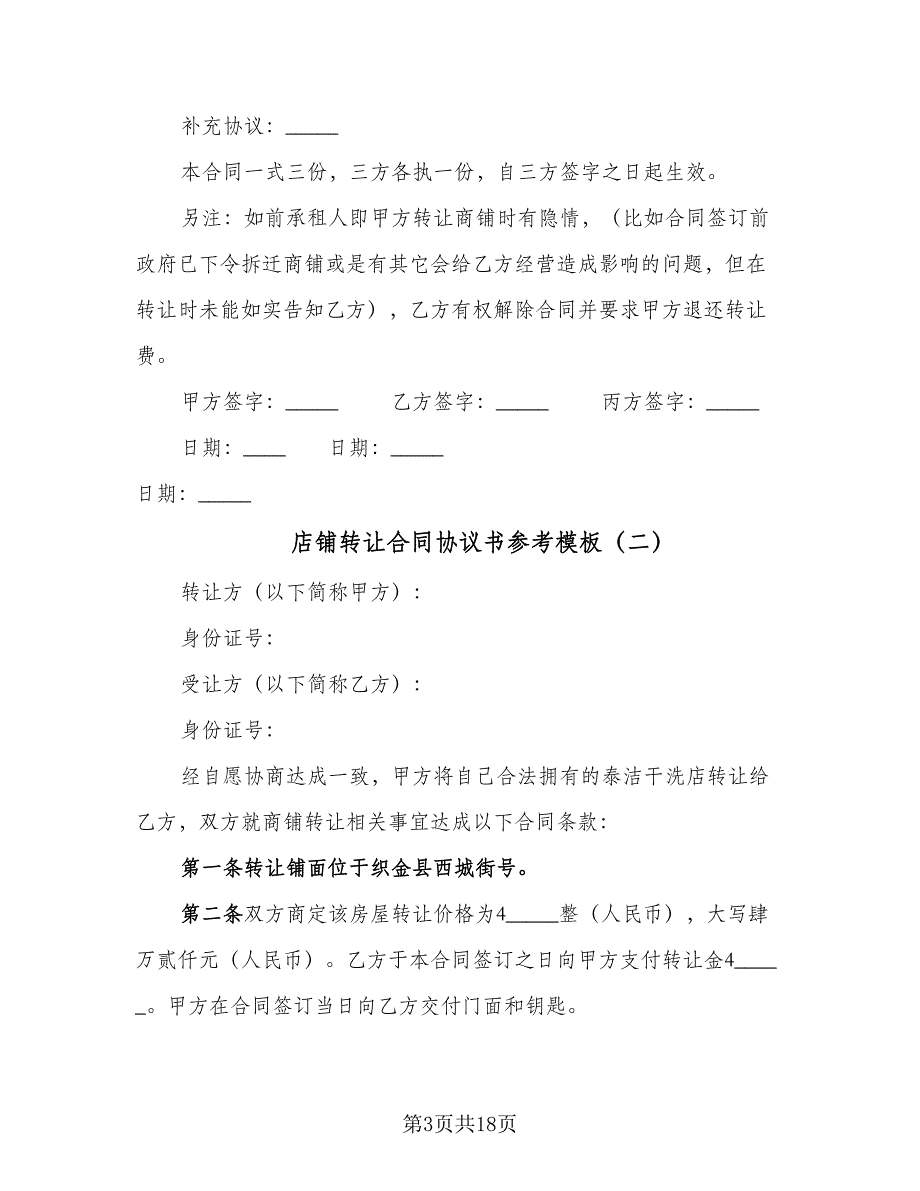 补充协议：_____
本合同一式三份，三方各执一份，自三方签字之日起生效。
另注：如前承租人即甲方转让商铺时有隐情，（比如合同签订前
政府已下令拆迁商铺或是有其它会给乙方经营造成影响的问题，但在
转让时未能如实告知乙方），乙方有权解除合同并要求甲方退还转让
费。
甲方签字：_____ 乙方签字：_____ 丙方签字：_____
日期：____ 日期：_____
日期：_____
店铺转让合同协议书参考模板（二）
转让方（以下简称甲方）：
身份证号：
受让方（以下简称乙方）：
身份证号：
经自愿协商达成一致，甲方将自己合法拥有的泰洁干洗店转让给
乙方，双方就商铺转让相关事宜达成以下合同条款：
第一条转让铺面位于织金县西城街号。
第二条双方商定该房屋转让价格为4_____整（人民币），大写肆
万贰仟元（人民币）。乙方于本合同签订之日向甲方支付转让金4____
_。甲方在合同签订当日向乙方交付门面和钥匙。
第3页共18页